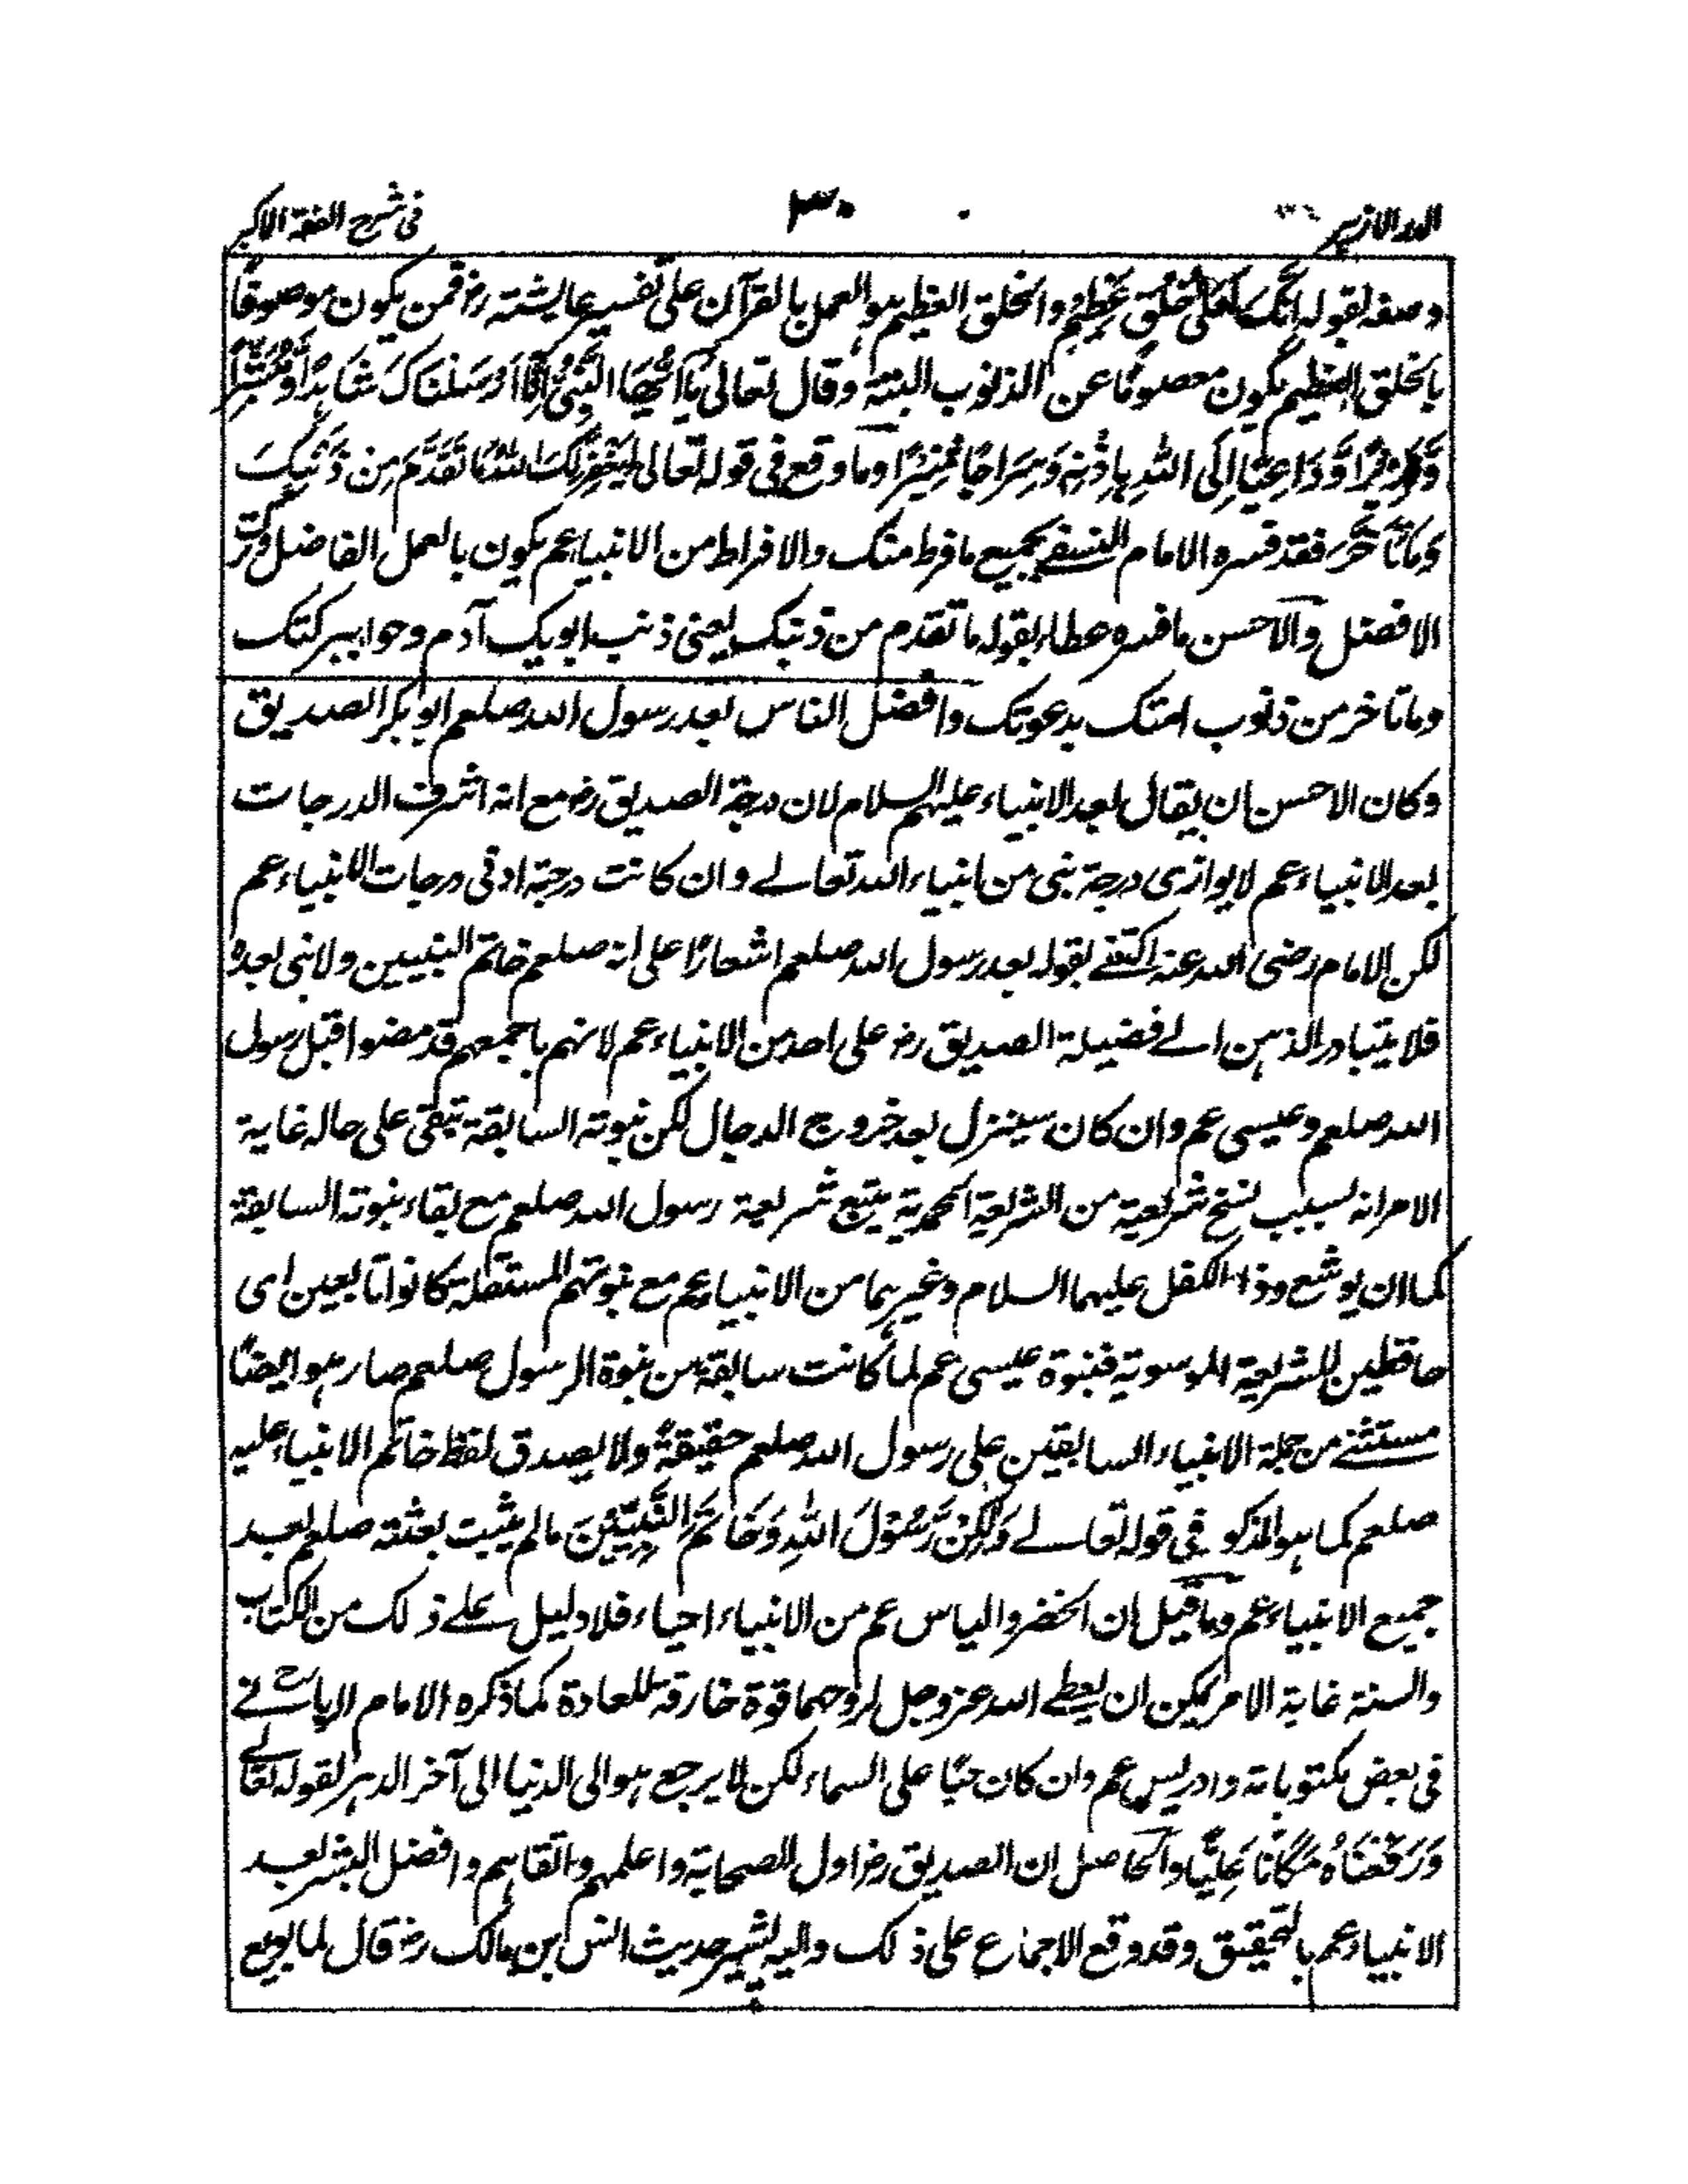 الدر الازهر
٣٠
فى شرح الفقه الاكبر
وصفه لقوله اِنَّكَ لَعَلٰى خُلُقٍ عَظِيْمٍ والخلق العظيم هو العمل بالقرآن على تفسير عايشته رض فمن يكون موصوفًا
بالخلق العظيم يكون معصومًا عن الذنوب البتة وقال تعالى يَا اَيُّهَا النَّبِىُّ اِنَّا اَرْسَلْنَاكَ شَاهِدًا وَّمُبَشِّرًا
وَّنَذِيْرًا وَّدَاعِيًا اِلَى اللّٰهِ بِاِذْنِهٖ وَسِرَاجًا مُّنِيْرًا وما وقع فى قوله تعالى لِيَغْفِرَ لَكَ اللّٰهُ مَا تَقَدَّمَ مِنْ ذَنْبِكَ
وَمَا تَاَخَّرَ فقد فسره الامام النسفے بجميع ما فرط منك والافراط من الانبياء عم يكون بالعمل الفاضل وترك
الافضل والاحسن ما فسره عطاء بقوله ما تقدم من ذنبك يعنى ذنب ابويك آدم وحوا ببركتك
وما تاخر من ذنوب امتك بدعوتك وافضل الناس بعد رسول الله صلعم ابوبكر الصديق
وكان الاحسن ان يقال بعد الانبياء عليهم السلام لان درجة الصديق رض مع انه اشرف الدرجات
بعد الانبياء عم لايوازى درجة نبى من انبياء الله تعالے وان كانت درجة ادنى درجات الانبياء عم
لكن الامام رضى الله عنه اكتفے بقوله بعد رسول الله صلعم اشعارًا على انه صلعم خاتم النبيين ولا نبى بعده
فلا يتبادر الذهن الے فضيلة الصديق رض على احد من الانبياء عم لانهم باجمعهم قد مضوا قبل رسول
الله صلعم وعيسى عم وان كان سينزل بعد خروج الدجال لكن نبوته السابقة تبقى على حاله غاية
الامر انه بسبب نسخ شريعية من الشريعة المحمدية يتبع شريعة رسول الله صلعم مع بقاء نبوته السابقة
كما ان يوشع وذا الكفل عليهما السلام وغيرهما من الانبياء عم مع نبوتهم المستقلة كانوا تابعين اى
حافظين للشريعة الموسوية فنبوة عيسى عم لما كانت سابقة من نبوة الرسول صلعم صار هو ايضًا
مستثنے من جملة الانبياء السابقين على رسول الله صلعم حقيقةً ولا يصدق لفظ خاتم الانبياء عليه
صلعم كما هو المذكور فى قوله تعالے وَلٰكِنْ رَّسُوْلَ اللّٰهِ وَخَاتَمَ النَّبِيِّيْنَ مالم يثبت بعثته صلعم بعد
جميع الانبياء عم وما قيل ان الخضر والياس عم من الانبياء احياء فلا دليل علے ذلك من الكتاب
والسنة غاية الامر يمكن ان يعطے الله عز وجل لروحهما قوة خارقة للعادة كما ذكره الامام الربانے رح
فى بعض مكتوباته وادريس عم وان كان حيًا على السماء لكن لا يرجع هو الى الدنيا الى آخر الدهر لقوله تعالے
وَرَفَعْنَاهُ مَكَانًا عَلِيًّا والحاصل ان الصديق رض اول الصحابة واعلمهم واتقاهم وافضل البشر بعد
الانبياء عم بالتحقيق وقد وقع الاجماع على ذلك واليه يشير حديث انس بن مالك رض قال لما بويع